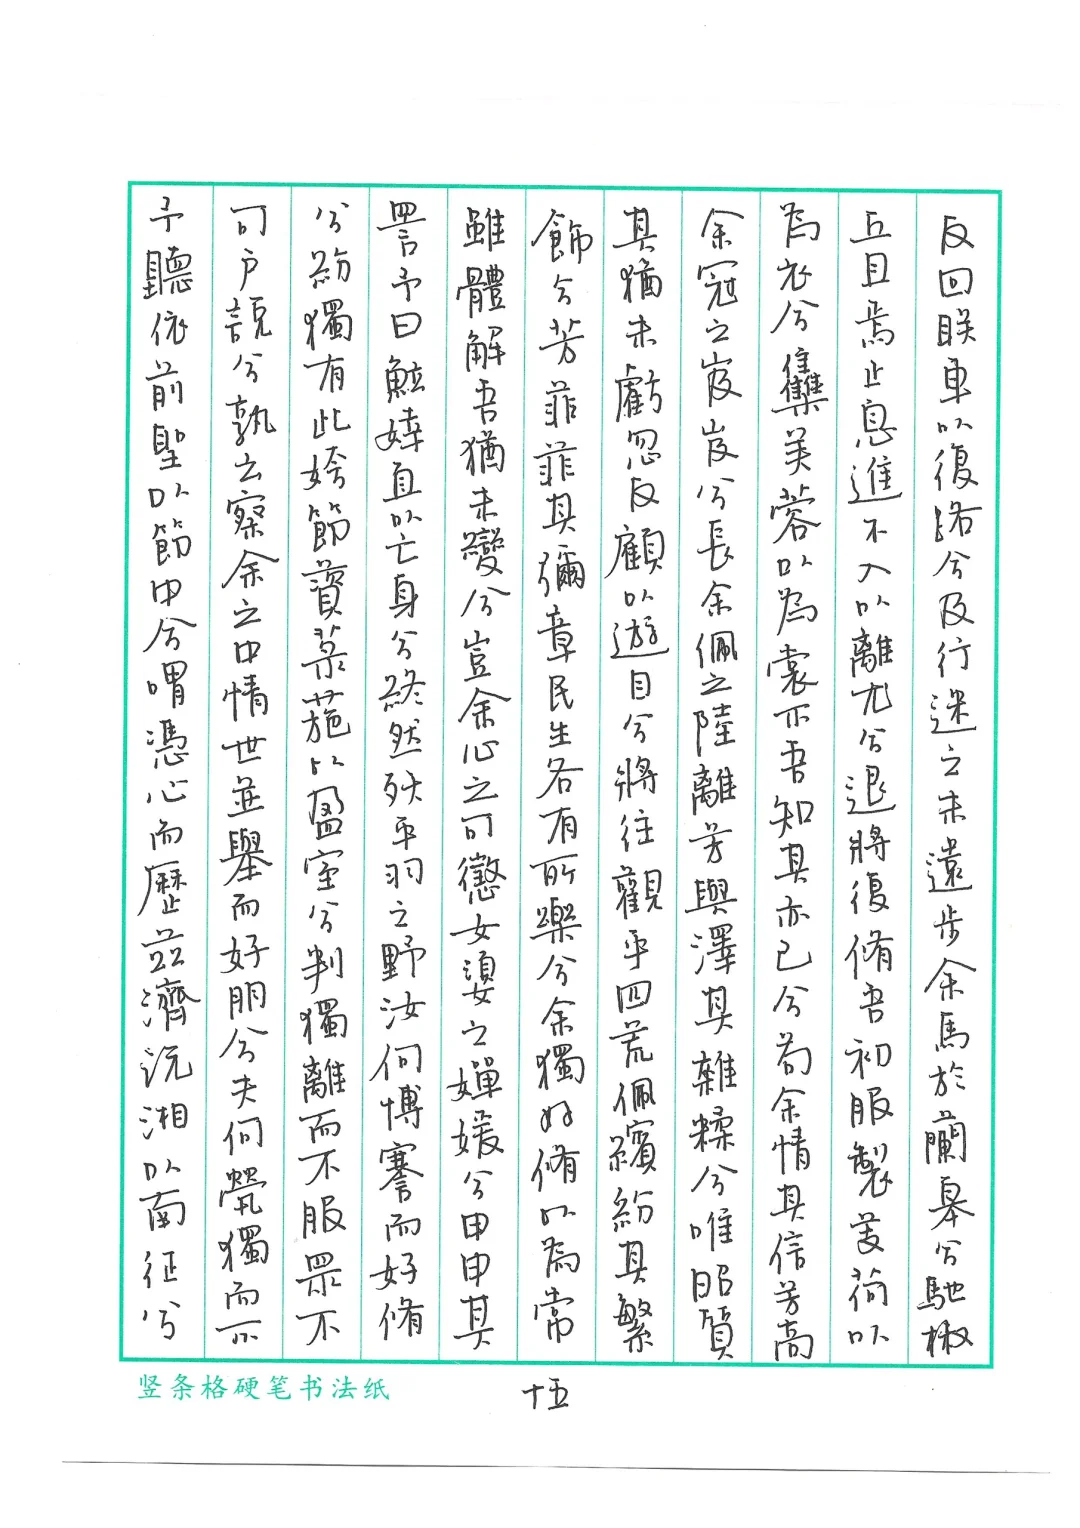 反回朕車以復路兮及行迷之未遠步余馬於蘭皋兮馳椒
丘且焉止息進不入以離尤兮退將復脩吾初服製芰荷以
為衣兮集芙蓉以為裳不吾知其亦已兮苟余情其信芳高
余冠之岌岌兮長余佩之陸離芳與澤其雜糅兮唯昭質
其猶未虧忽反顧以遊目兮將往觀乎四荒佩繽紛其繁
飾兮芳菲菲其彌章民生各有所樂兮余獨好脩以為常
雖體解吾猶未變兮豈余心之可懲女嬃之嬋媛兮申申其
詈予曰鯀婞直以亡身兮終然殀乎羽之野汝何博謇而好脩
兮紛獨有此姱節薋菉葹以盈室兮判獨離而不服眾不
可户說兮孰云察余之中情世並舉而好朋兮夫何煢獨而不
予聽依前聖以節中兮喟憑心而歷茲濟沅湘以南征兮
竖条格硬笔书法纸
十五